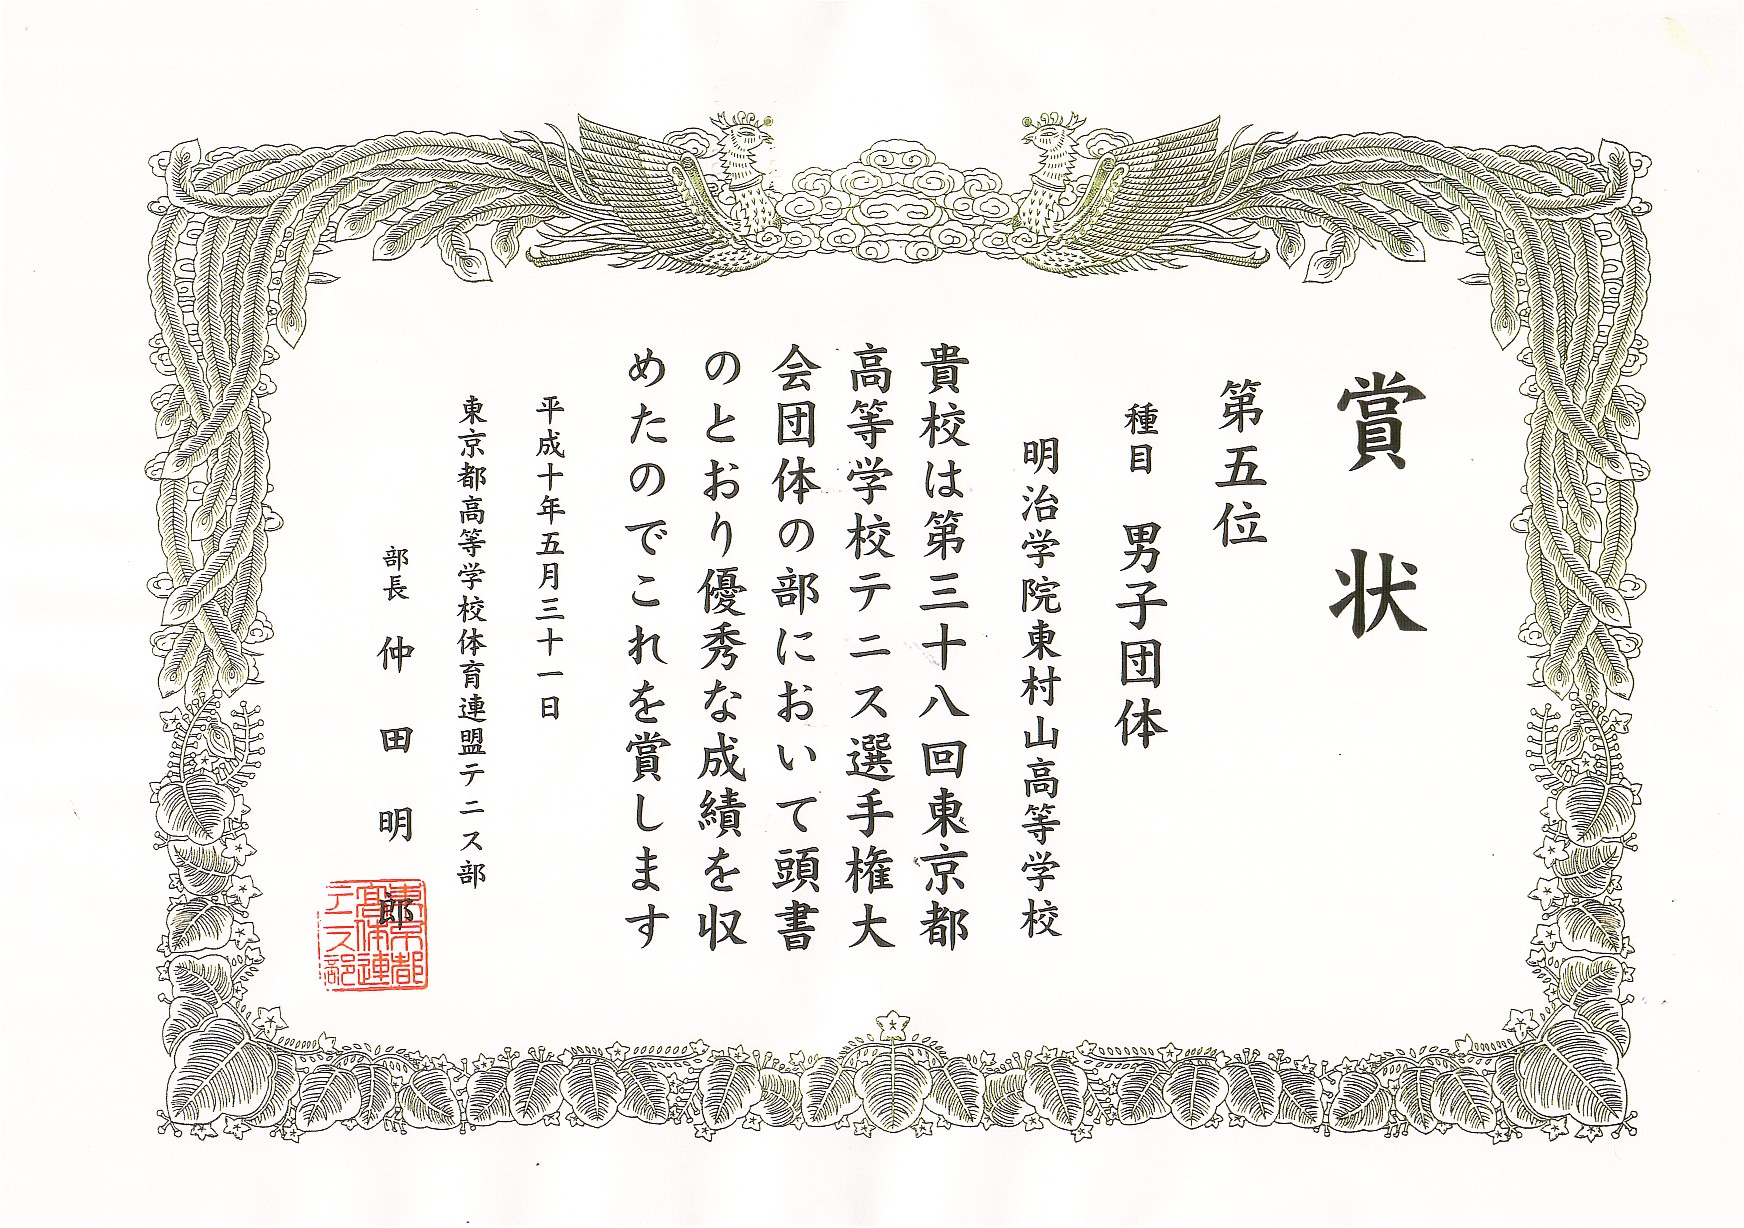 賞状
第五位
種目 男子団体
明治学院東村山高等学校
貴校は第三十八回東京都
高等学校テニス選手権大
会団体の部において頭書
のとおり優秀な成績を収
めたのでこれを賞します
平成十年五月三十一日
東京都高等学校体育連盟テニス部
部長 仲田明郎
東京都
高体連
テニス部